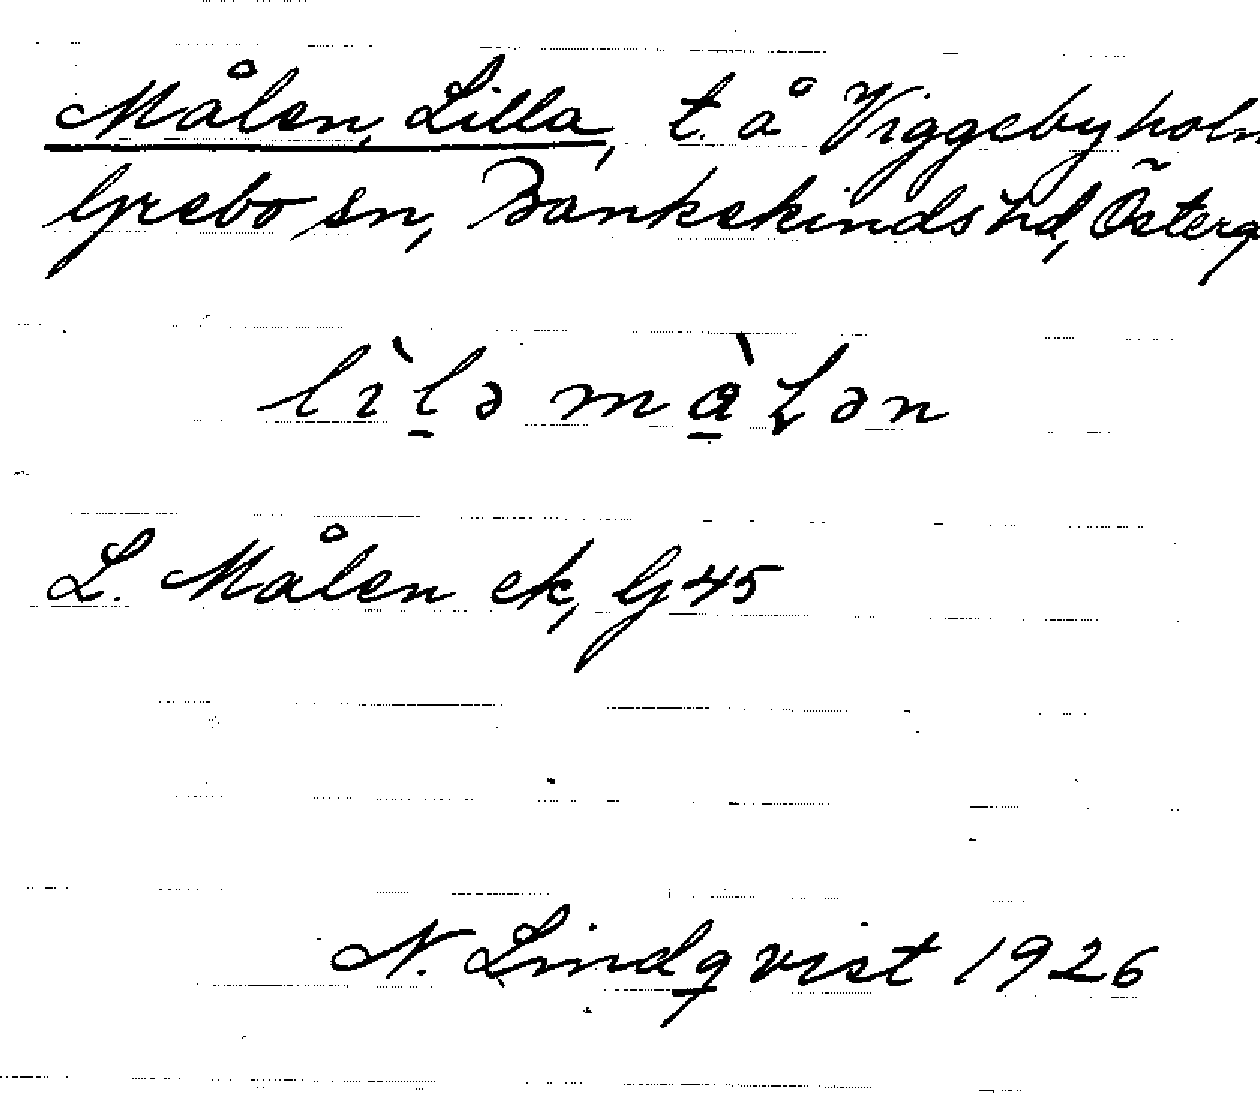 Målen, Lilla, t. å Viggebyholm
Grebo sn, Bankekinds hd, Österg
lìlə màlən
L. Målen ek, G 45
N. Lindqvist 1926